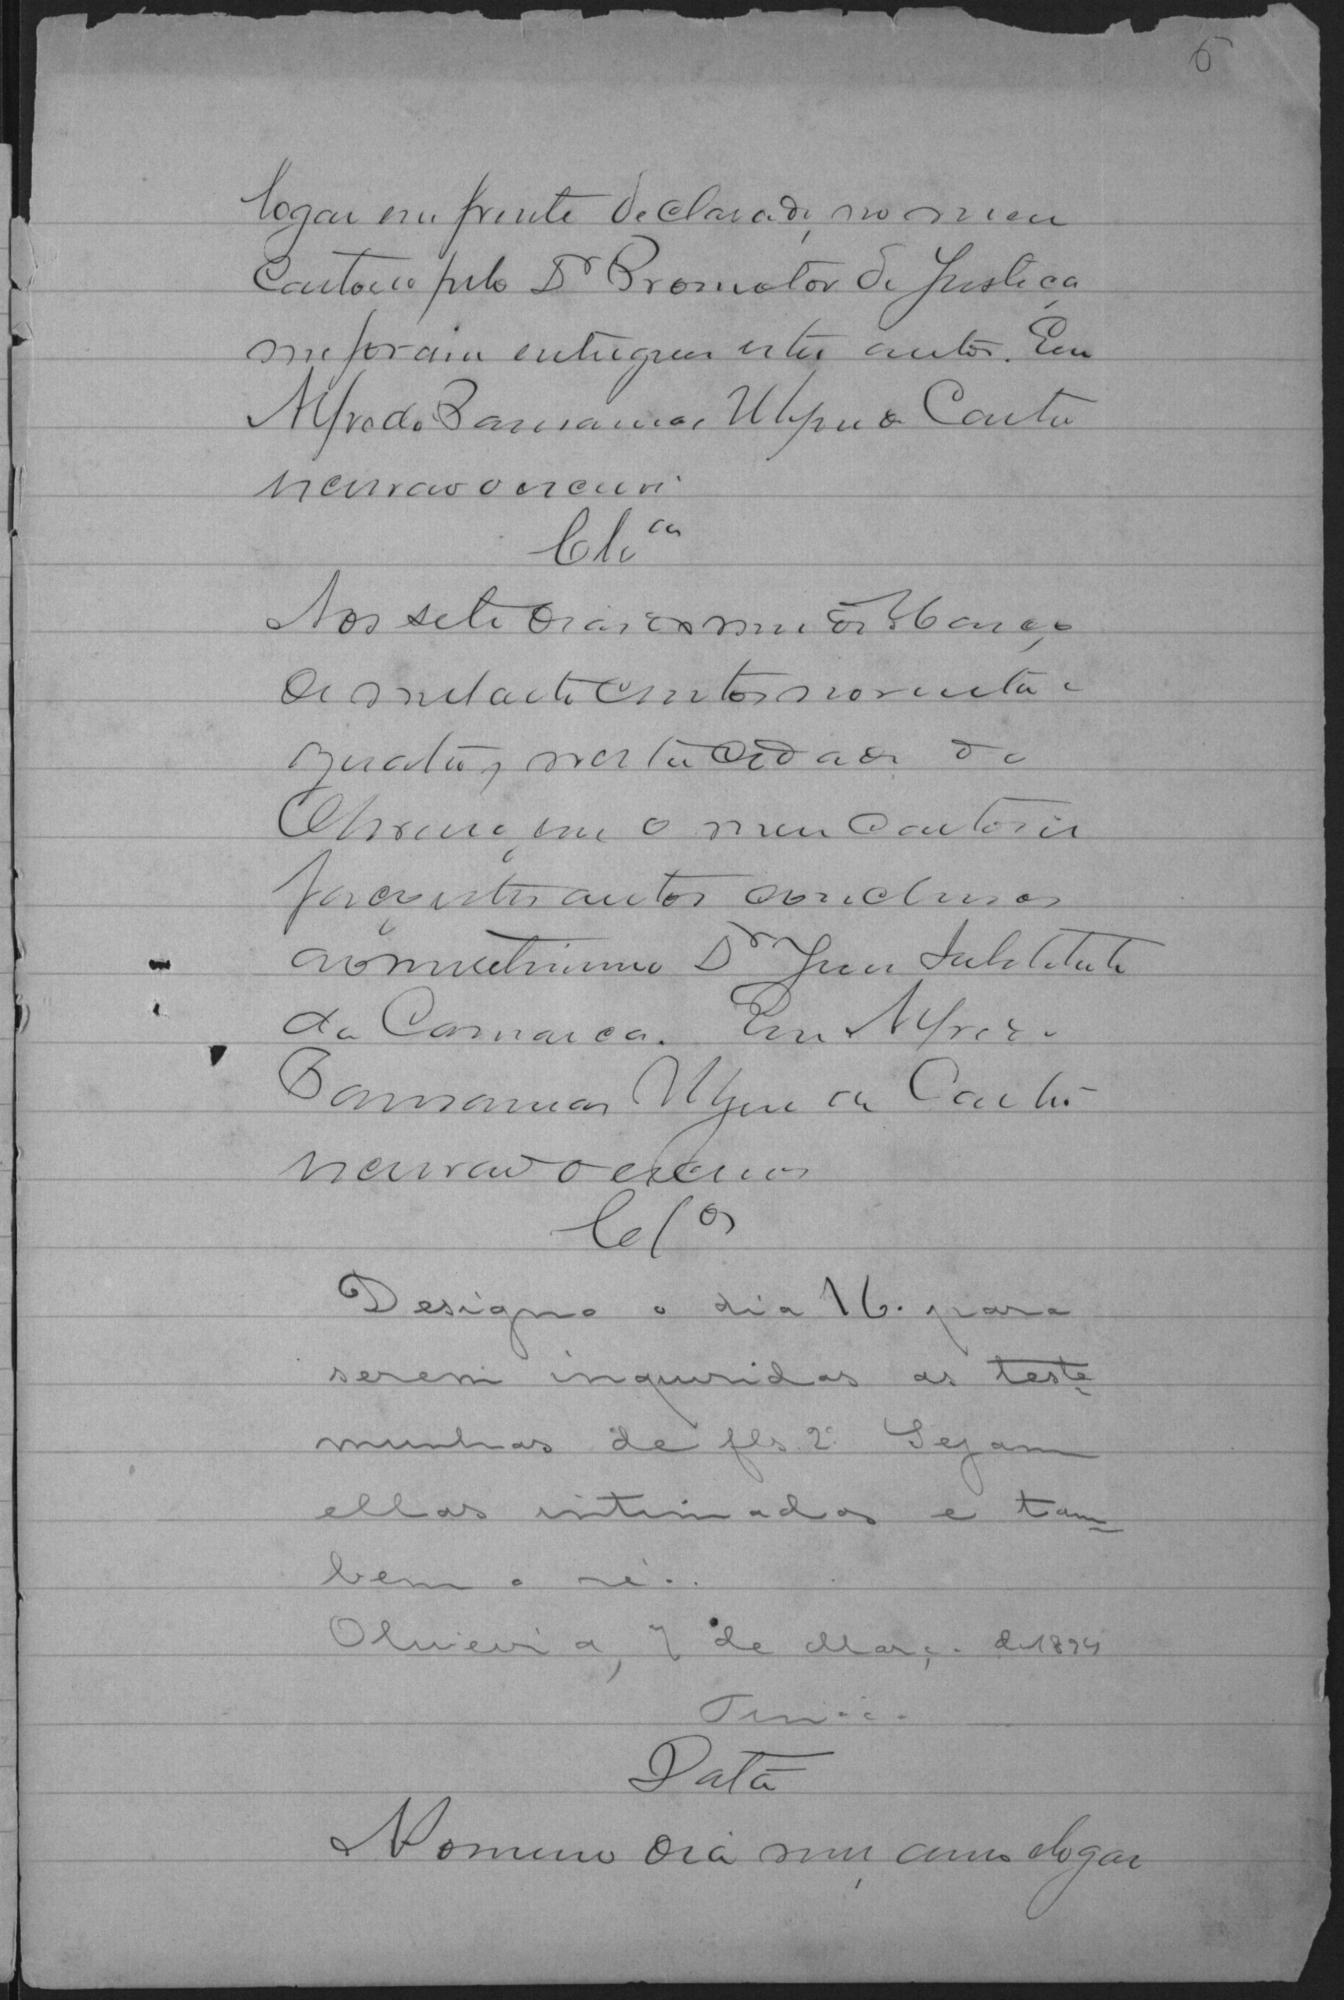 5
logar em frente declarado, no meu
Cartorio pelo Dr Promotor de Justiça
me foram entregues estes autos. Eu
Alfredo
escrivão o escrevi
Clsão
Aos sete dias do mez de Março
de mil oito centos noventa e
quatro, nesta Cidade de
Oliveira, em o meu cartorio
faço estes autos conclusos
ao meritissimo Dr Juiz Substituto
da Comarca. Eu Alfredo

escrivão o escrevi
Clsos
Designo o dia 16. para
serem inqueridas as teste-
munhas de fls 2. Sejam
ellas intimadas e tam-
bem o réo.
Oliveira, 7 de Março de 1894
Data
No mesmo dia mez anno e logar